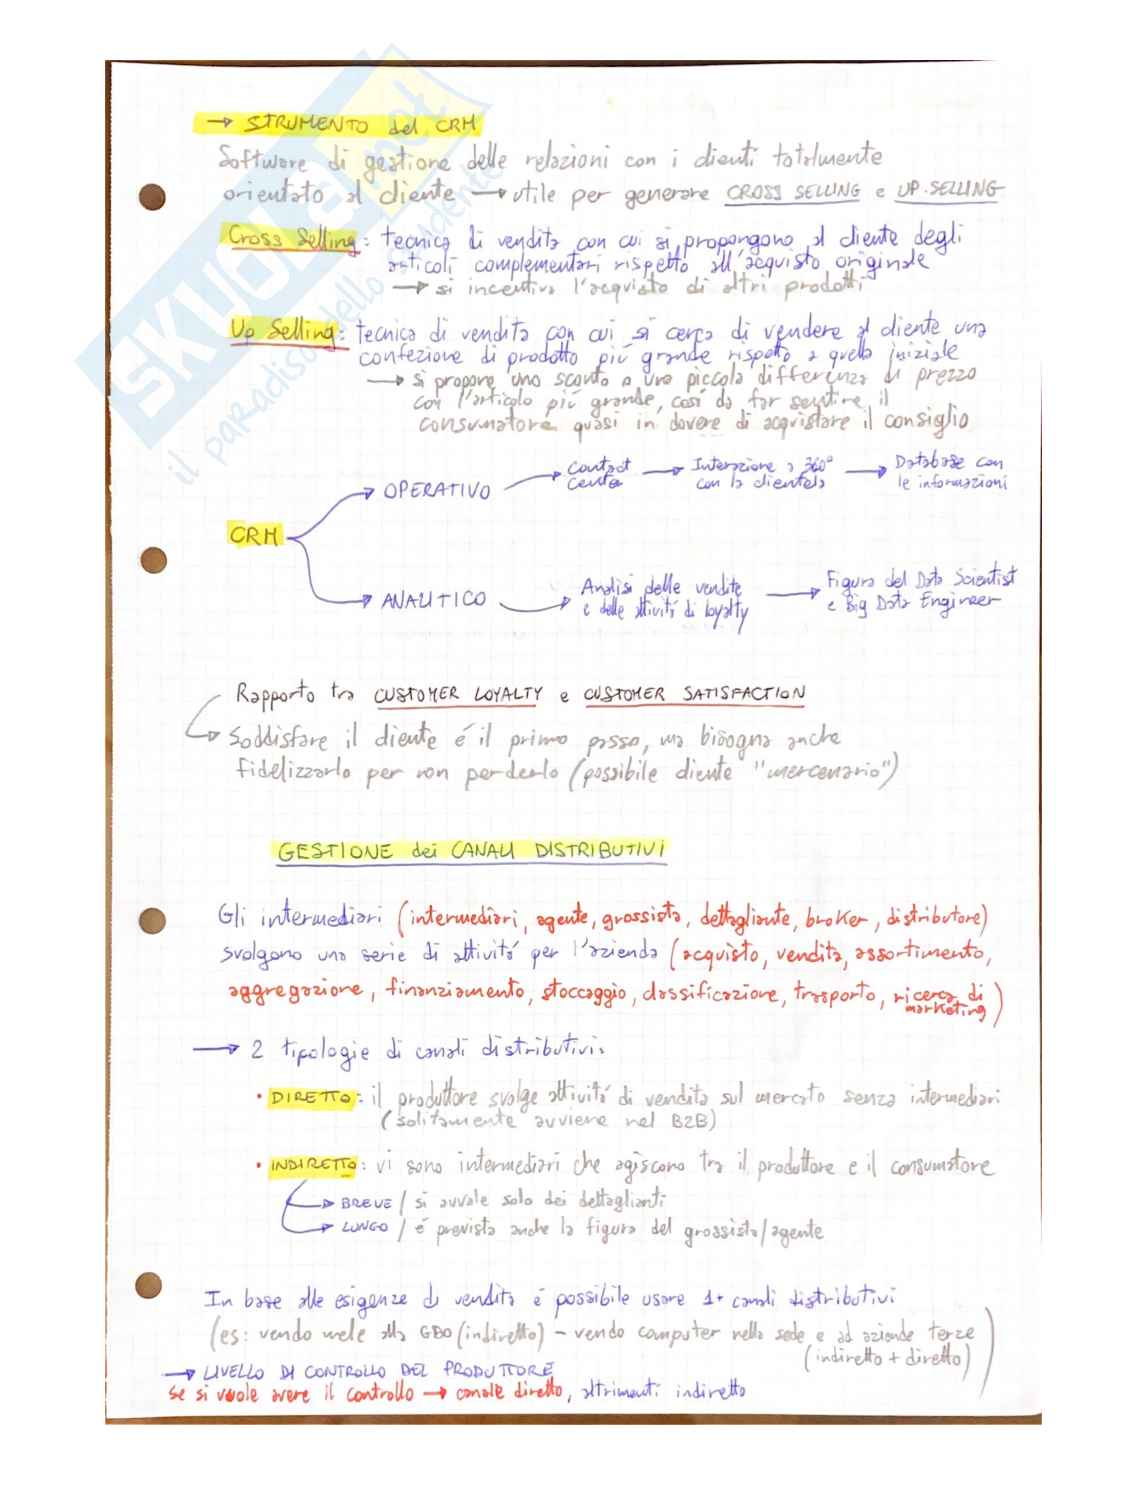 → STRUMENTO del CRM
Software di gestione delle relazioni con i clienti totalmente
orientato al cliente → utile per generare CROSS SELLING e UP-SELLING
Cross Selling: tecnica di vendita con cui si propongono al cliente degli
articoli complementari rispetto all'acquisto originale
→ si incentiva l'acquisto di altri prodotti
Up Selling: tecnica di vendita con cui si cerca di vendere al cliente una
confezione di prodotto più grande rispetto a quella iniziale
→ si propone uno sconto o una piccola differenza di prezzo
con l'articolo più grande, così da far sentire il
consumatore quasi in dovere di acquistare il consiglio
CRM
OPERATIVO → Contact Center → Interazione a 360° con la clientela → Database con le informazioni
ANALITICO → Analisi delle vendite e delle attività di loyalty → Figura del Data Scientist e Big Data Engineer
Rapporto tra CUSTOMER LOYALTY e CUSTOMER SATISFACTION
→ Soddisfare il cliente é il primo passo, ma bisogna anche
fidelizzarlo per non perderlo (possibile cliente "mercenario")
GESTIONE dei CANALI DISTRIBUTIVI
Gli intermediari (intermediari, agente, grossista, dettagliante, broker, distributore)
svolgono una serie di attivitá per l'azienda (acquisto, vendita, assortimento,
aggregazione, finanziamento, stoccaggio, classificazione, trasporto, ricerca di marketing)
→ 2 tipologie di canali distributivi:
• DIRETTO: il produttore svolge attivitá di vendita sul mercato senza intermediari
(solitamente avviene nel B2B)
• INDIRETTO: vi sono intermediari che agiscono tra il produttore e il consumatore
→ BREVE / si avvale solo dei dettaglianti
→ LUNGO / é prevista anche la figura del grossista/agente
In base alle esigenze di vendita é possibile usare 1+ canali distributivi
(es: vendo mele alla GDO (indiretto) - vendo computer nella sede e ad aziende terze
(indiretto + diretto))
→ LIVELLO DI CONTROLLO DEL PRODUTTORE
Se si vuole avere il controllo → canale diretto, altrimenti indiretto
SKUOLA.net
il paradiso dello studente